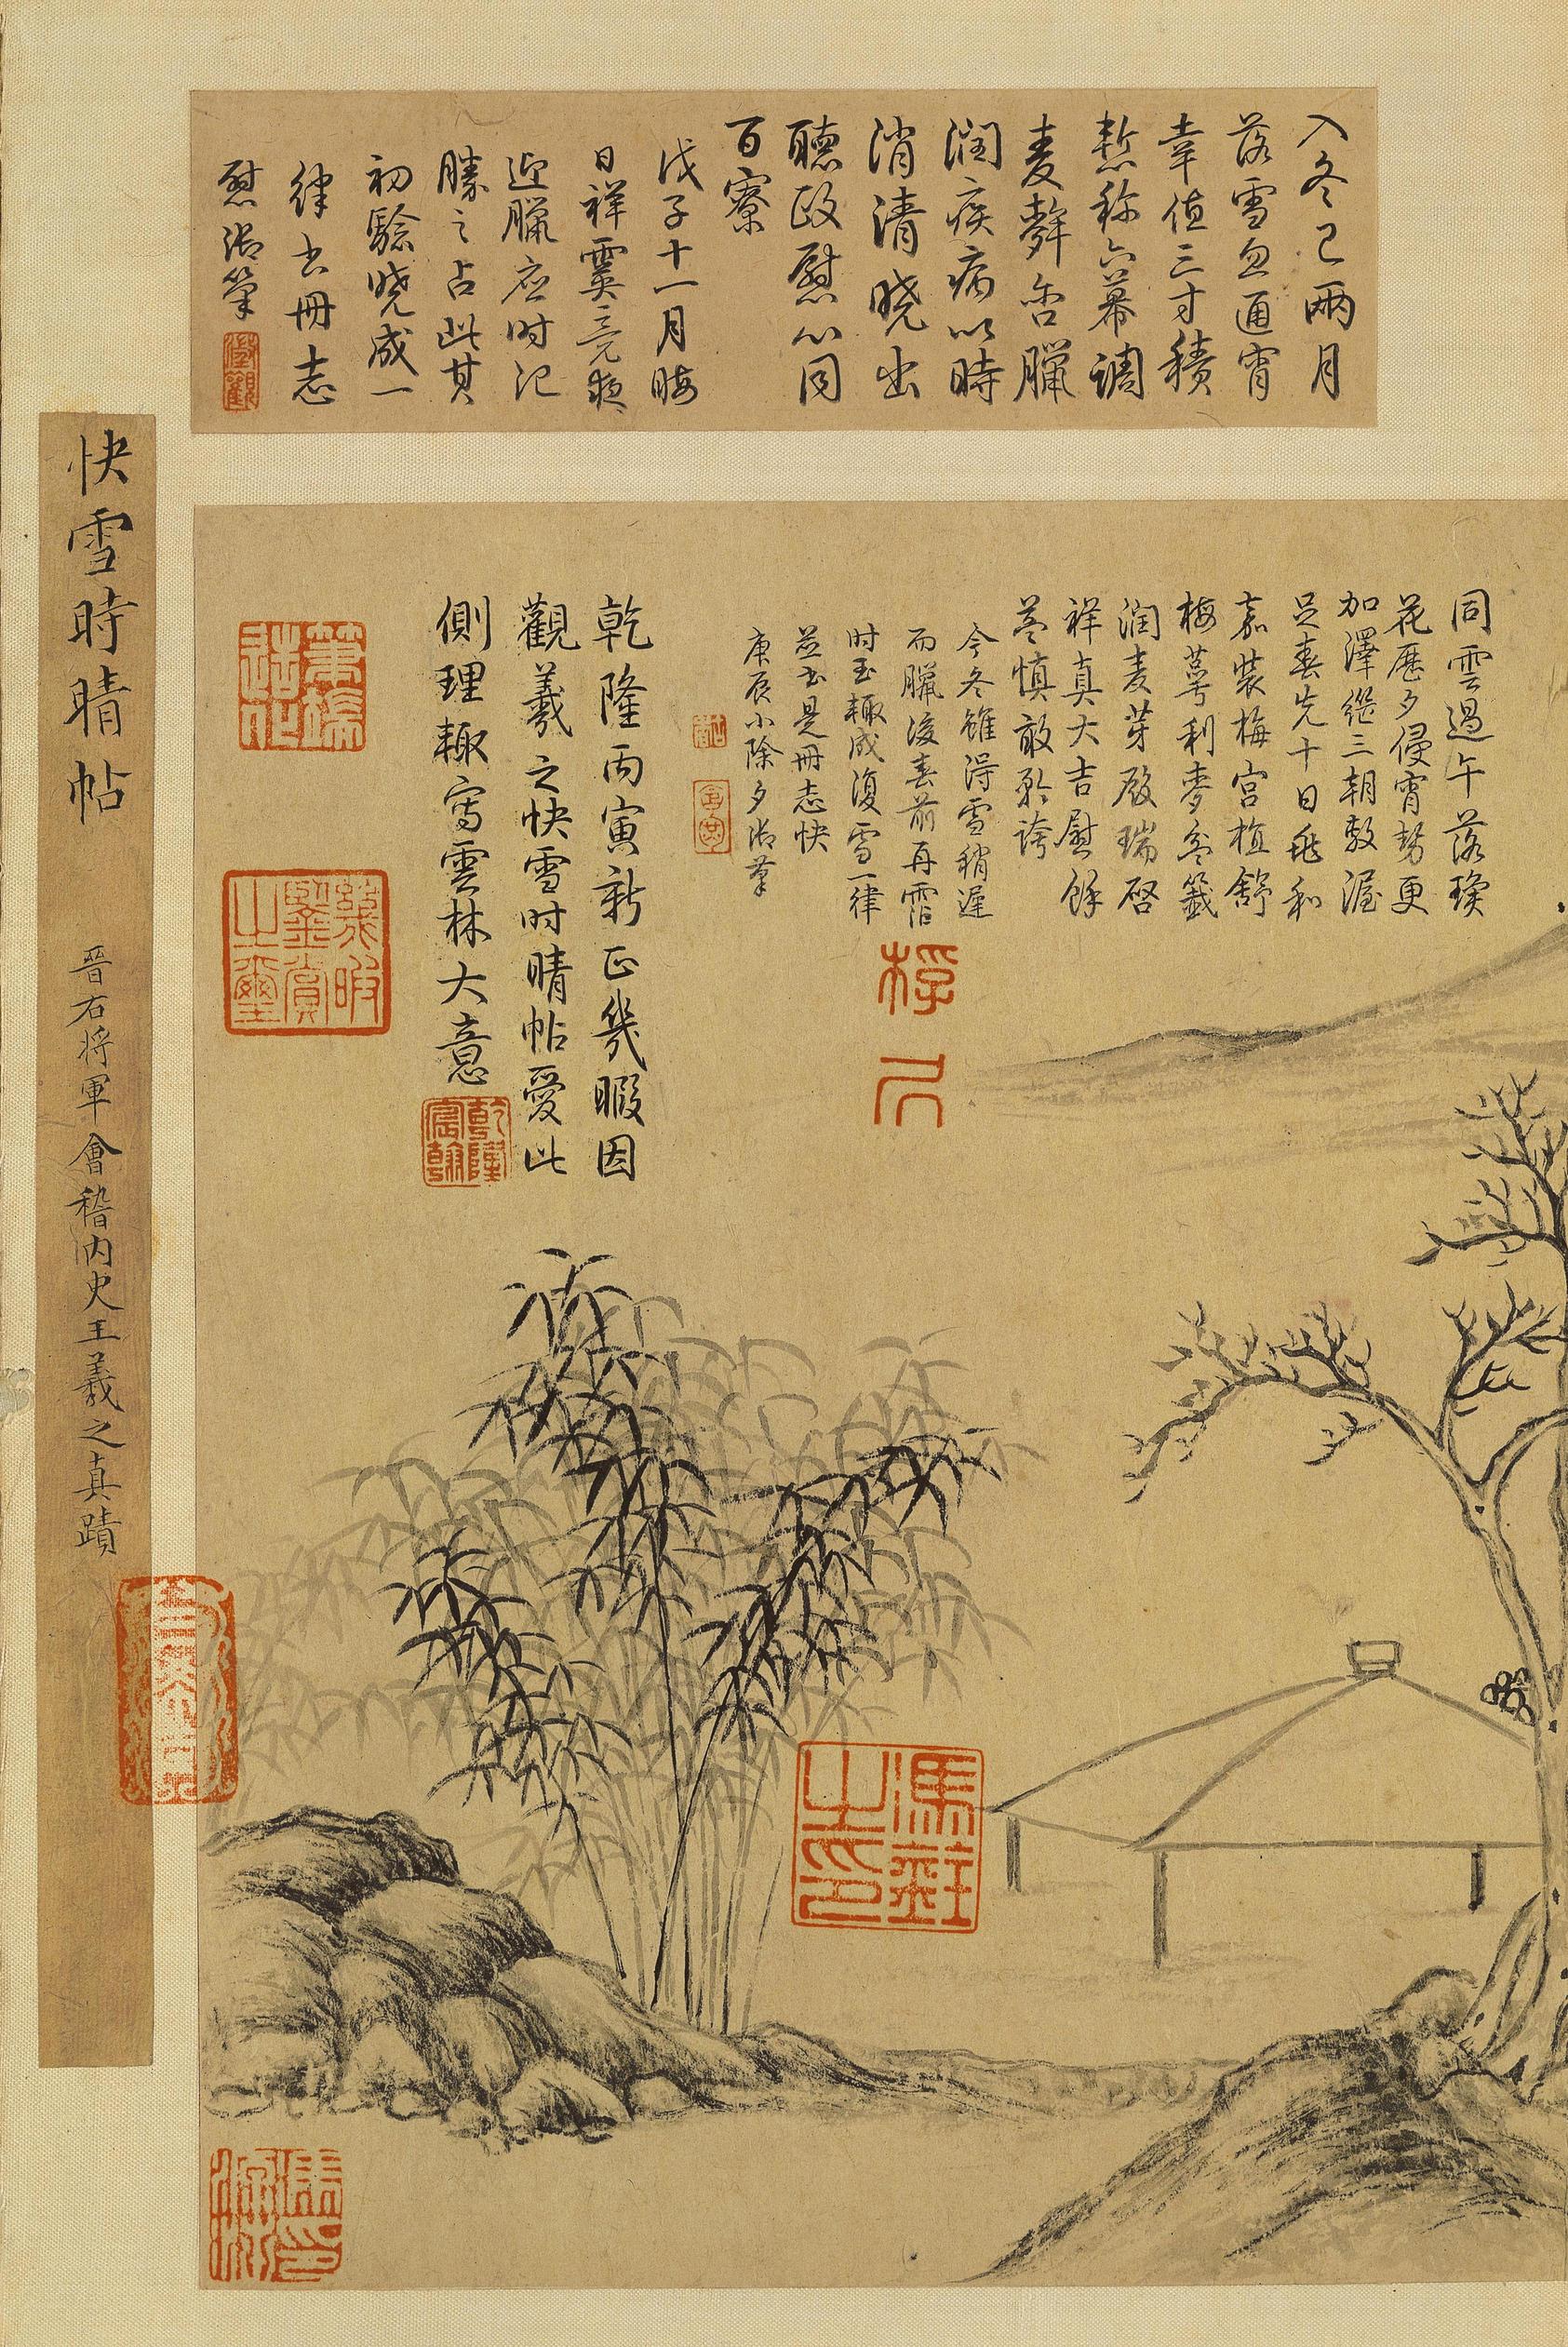 入冬已兩月
落雪忽通宵
幸值三寸積
慙稱六幕調
麦辫含臘
潤疾病以時
消清曉出
聽政慰心同
百寮
戊子十一月晦
日祥霙竟夜
迎臘应时记
勝之占此其
初驗曉成一
律书冊志
慰御筆
同雲過午落瓊
花歷夕侵宵勢更
加澤继三朝敷渥
足春先十日飛和
嘉裝梅宮植舒
梅萼利麥
潤麦芽殷瑞啓
祥真大吉慰餘
益慎敢矜誇
今冬雖得雪稍遲
而臘後春前再霑
时玉輙成復雪一律
並书是冊志快
庚辰小除夕御筆
乾隆丙寅新正幾暇因
觀羲之快雪时晴帖愛此
側理輙寫雲林大意
乾隆宸翰
幾暇鑒賞之璽
馮銓之印
快雪時晴帖
晉右将軍會稽内史王羲之真蹟